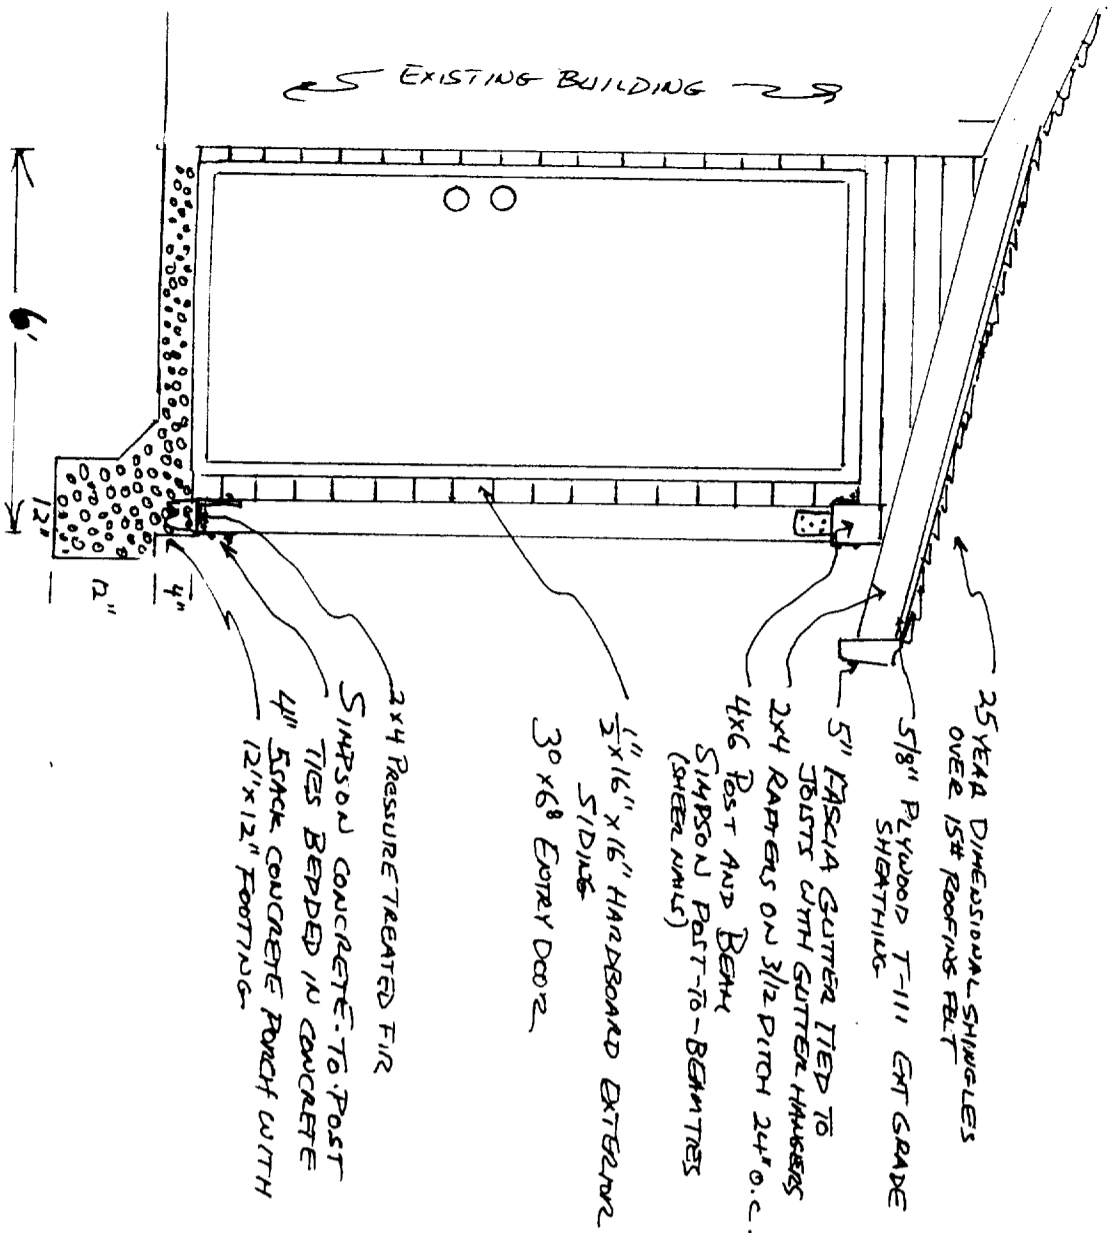 EXISTING BUILDING
25 YEAR DIMENSIONAL SHINGLES
OVER 15# ROOFING FELT
5/8" PLYWOOD T-111 EXT GRADE
SHEATHING
5" FASCIA GUTTER TIED TO
JOISTS WITH GUTTER HANGERS
2x4 RAFTERS ON 3/12 PITCH 24" O.C.
4x6 POST AND BEAM
SIMPSON POST-TO-BEAM TIES
(SHEER NAILS)
1/2" x 16" x 16' HARDBOARD EXTERIOR
SIDING
3⁰ x 6⁸ ENTRY DOOR
2x4 PRESSURE TREATED FIR
SIMPSON CONCRETE-TO-POST
TIES BEDDED IN CONCRETE
4" 5SACK CONCRETE PORCH WITH
12" x 12" FOOTING
6'
12"
12"
4"